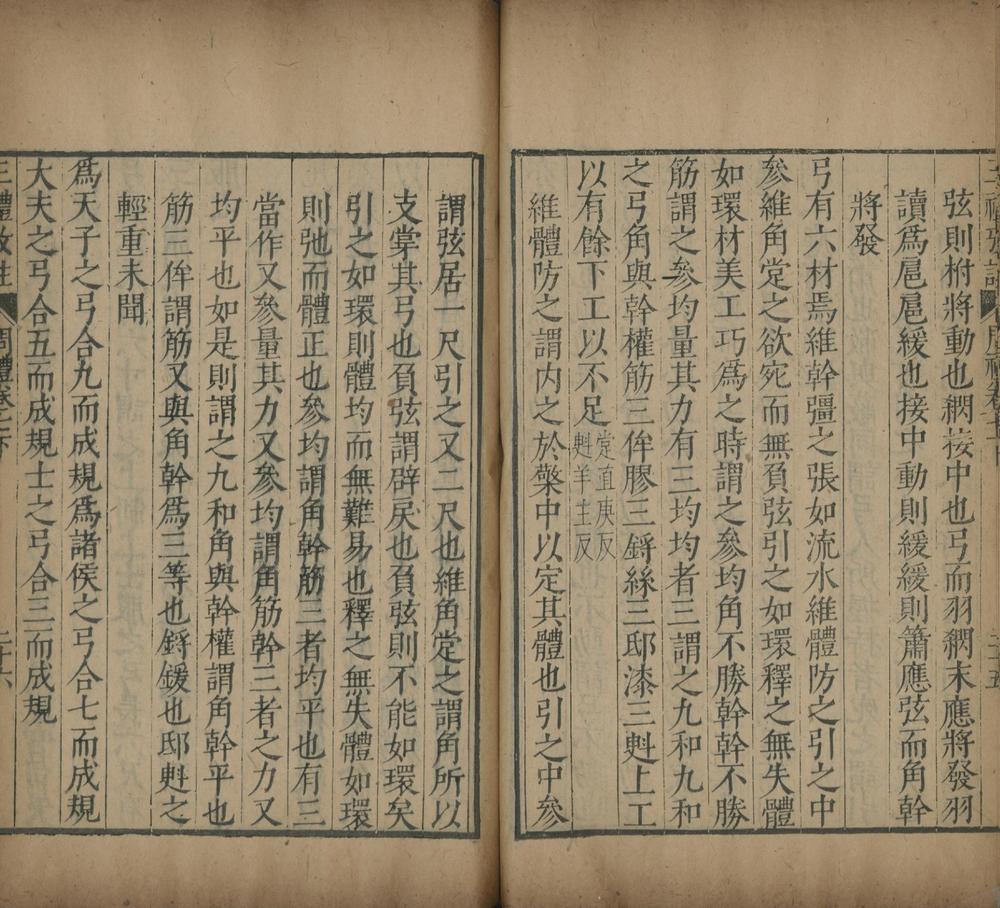 弦則柎將動也綱接中也弓而羽綱末應將發羽
讀爲扈扈緩也接中動則緩緩則簫應弦而角幹
將發
弓有六材焉維幹彊之張如流水維體防之引之中
參維角定之欲宛而無負弦引之如環釋之無失體
如環材美工巧爲之時謂之參均角不勝幹幹不勝
筋謂之參均量其力有三均均者三謂之九和九和
之弓角與幹權筋三侔膠三鋝絲三邸漆三㪺上工
以有餘下工以不足
定直庚反
㪺羊主反
維體防之謂内之於檠中以定其體也引之中參
謂弦居一尺引之又二尺也維角定之謂角所以
支掌其弓也負弦謂辟戾也負弦則不能如環矣
引之如環則體均而無難易也釋之無失體如環
則弛而體正也參均謂角幹筋三者均平也有三
當作又參量其力又參均謂角筋幹三者之力又
均平也如是則謂之九和角與幹權謂角幹平也
筋三侔謂筋又與角幹爲三等也鋝鍰也邸㪺之
輕重未聞
爲天子之弓合九而成規爲諸侯之弓合七而成規
大夫之弓合五而成規士之弓合三而成規
三禮攷註 周禮卷之下 二十六